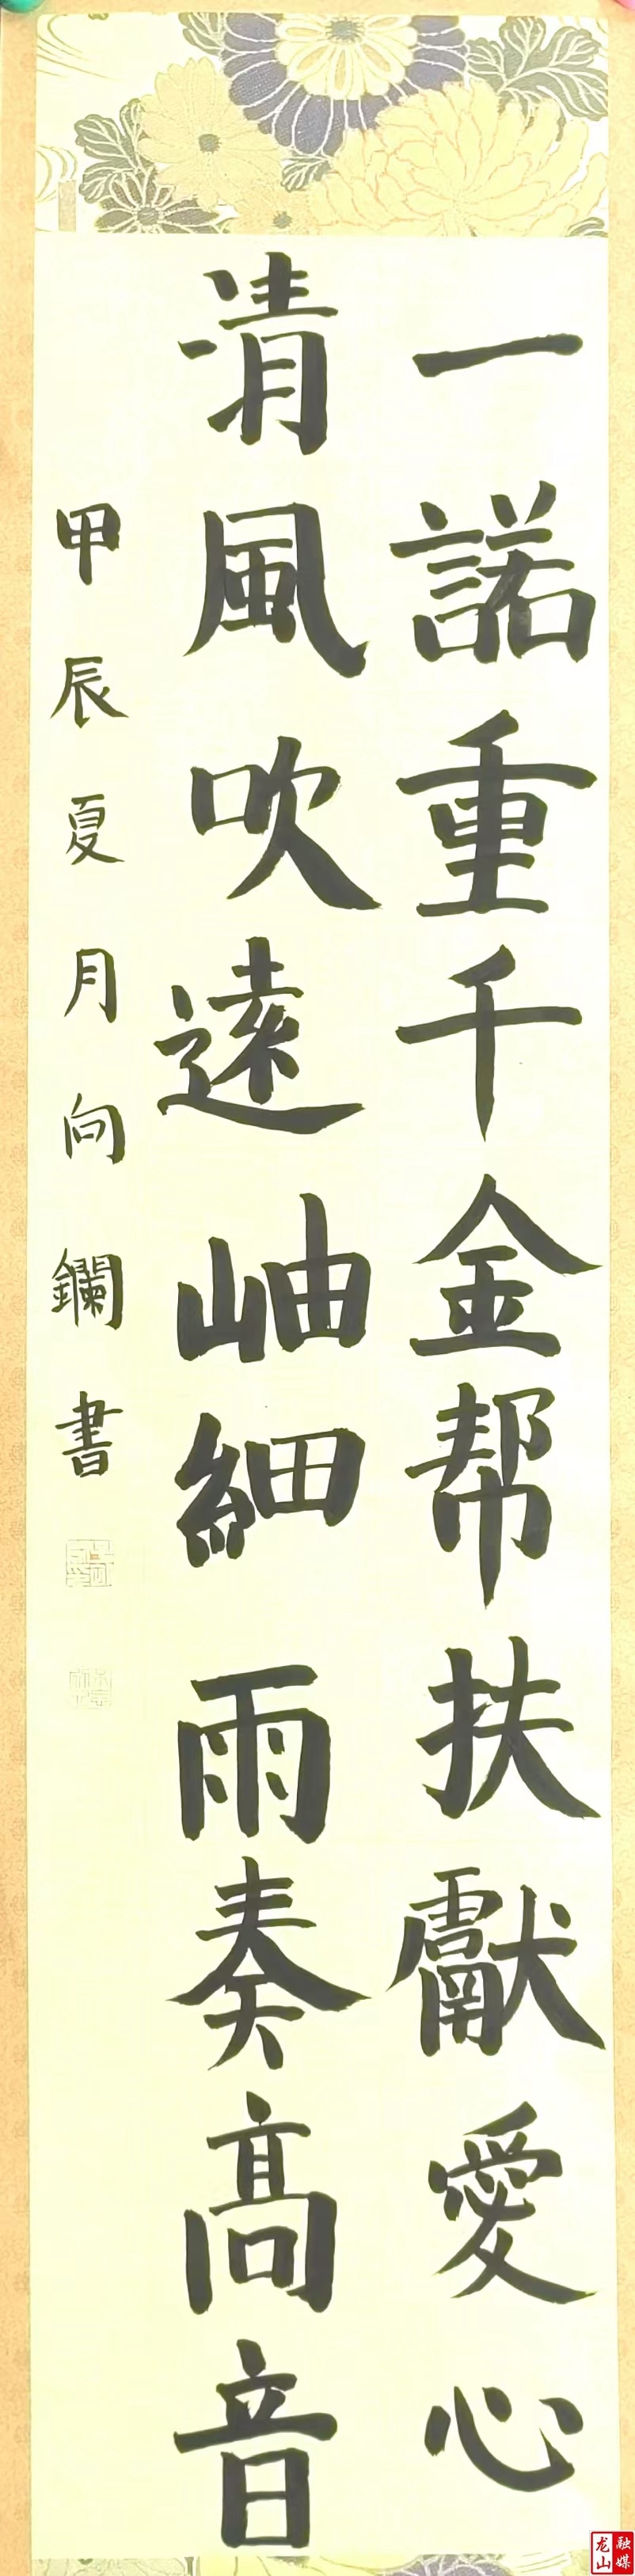 一諾重千金帮扶獻愛心
清風吹遠岫細雨奏高音
甲辰夏月向鑭書
龙山
融媒